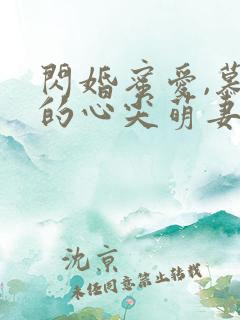 閃婚蜜愛,慕
的心尖萌妻
沈京
未经同意禁止转载